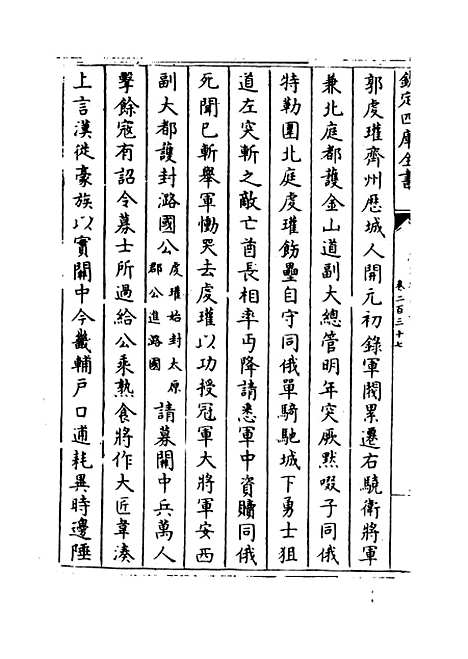 欽定四庫全書
卷二百三十七
郭虔瓘齊州歴城人開元初錄軍閥累遷右驍衛將軍
兼北庭都護金山道副大總管明年突厥黙啜子同俄
特勒圍北庭虔瓘飭壘自守同俄單騎馳城下勇士狙
道左突斬之敵亡酋長相率丐降請悉軍中資贖同俄
死聞已斬舉軍慟哭去虔瓘以功授冠軍大將軍安西
副大都護封潞國公虔瓘始封太原
郡公進潞國請募關中兵萬人
擊餘寇有詔令募士所過給公乘熟食將作大匠韋湊
上言漢徙豪族以實關中今畿輔戶口逋耗異時邊陲